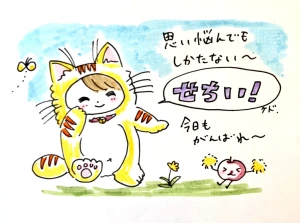 思い悩んでも
しかたない〜
ぜちい!
ケド.
今日も
がんばれ〜